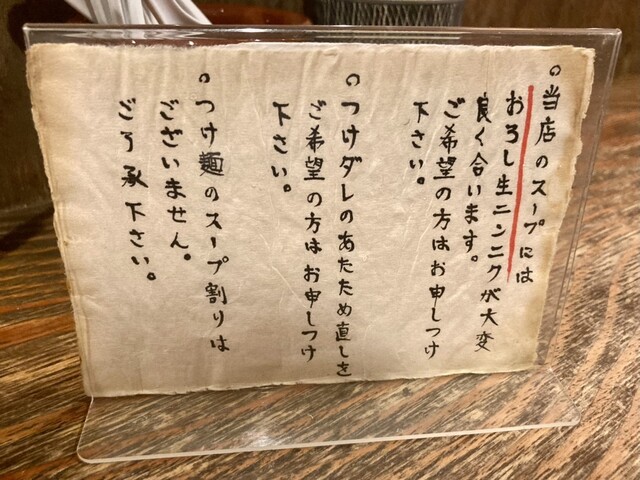 ○当店のスープには
おろし生ニンニクが大変
良く合います。
ご希望の方はお申しつけ
下さい。
○つけダレのあたため直しを
ご希望の方はお申しつけ
下さい。
○つけ麺のスープ割りは
ございません。
ご了承下さい。